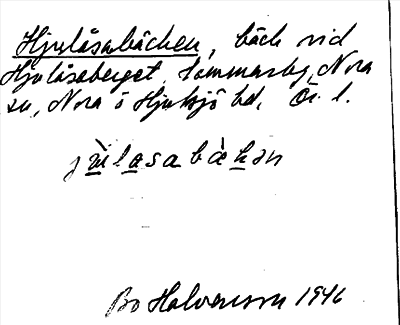 Hjulåsabäcken, bäck vid
Hjulåsaberget, Nora
sn, Nora o Hjulsjö bd, Ör. l.
jùlasabàkən
Bo Halvarsson 1946